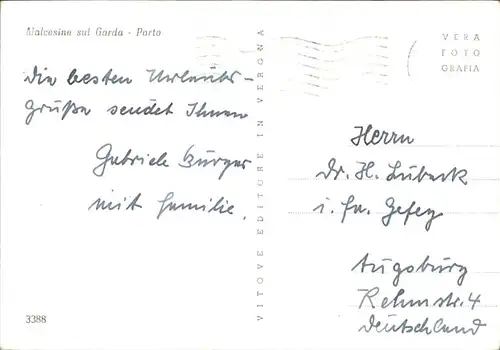 Malcesine sul Garda - Porto
VERA
FOTO
GRAFIA
die besten Urlaubs-
grüße sendet Ihnen
Gabriele Burger
mit Familie.
VITOVE EDITORE IN VERONA
Herrn
Dr. H. Lübeck
i. Fa. Gefeg
Augsburg
Rehmstr. 4
Deutschland
3388